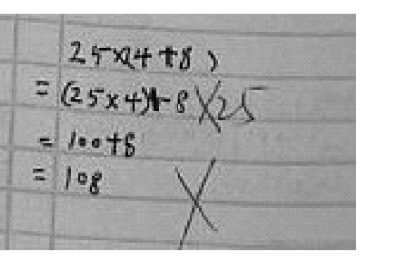 25×(4+8)
=(25×4)+8×25
=100+8
=108